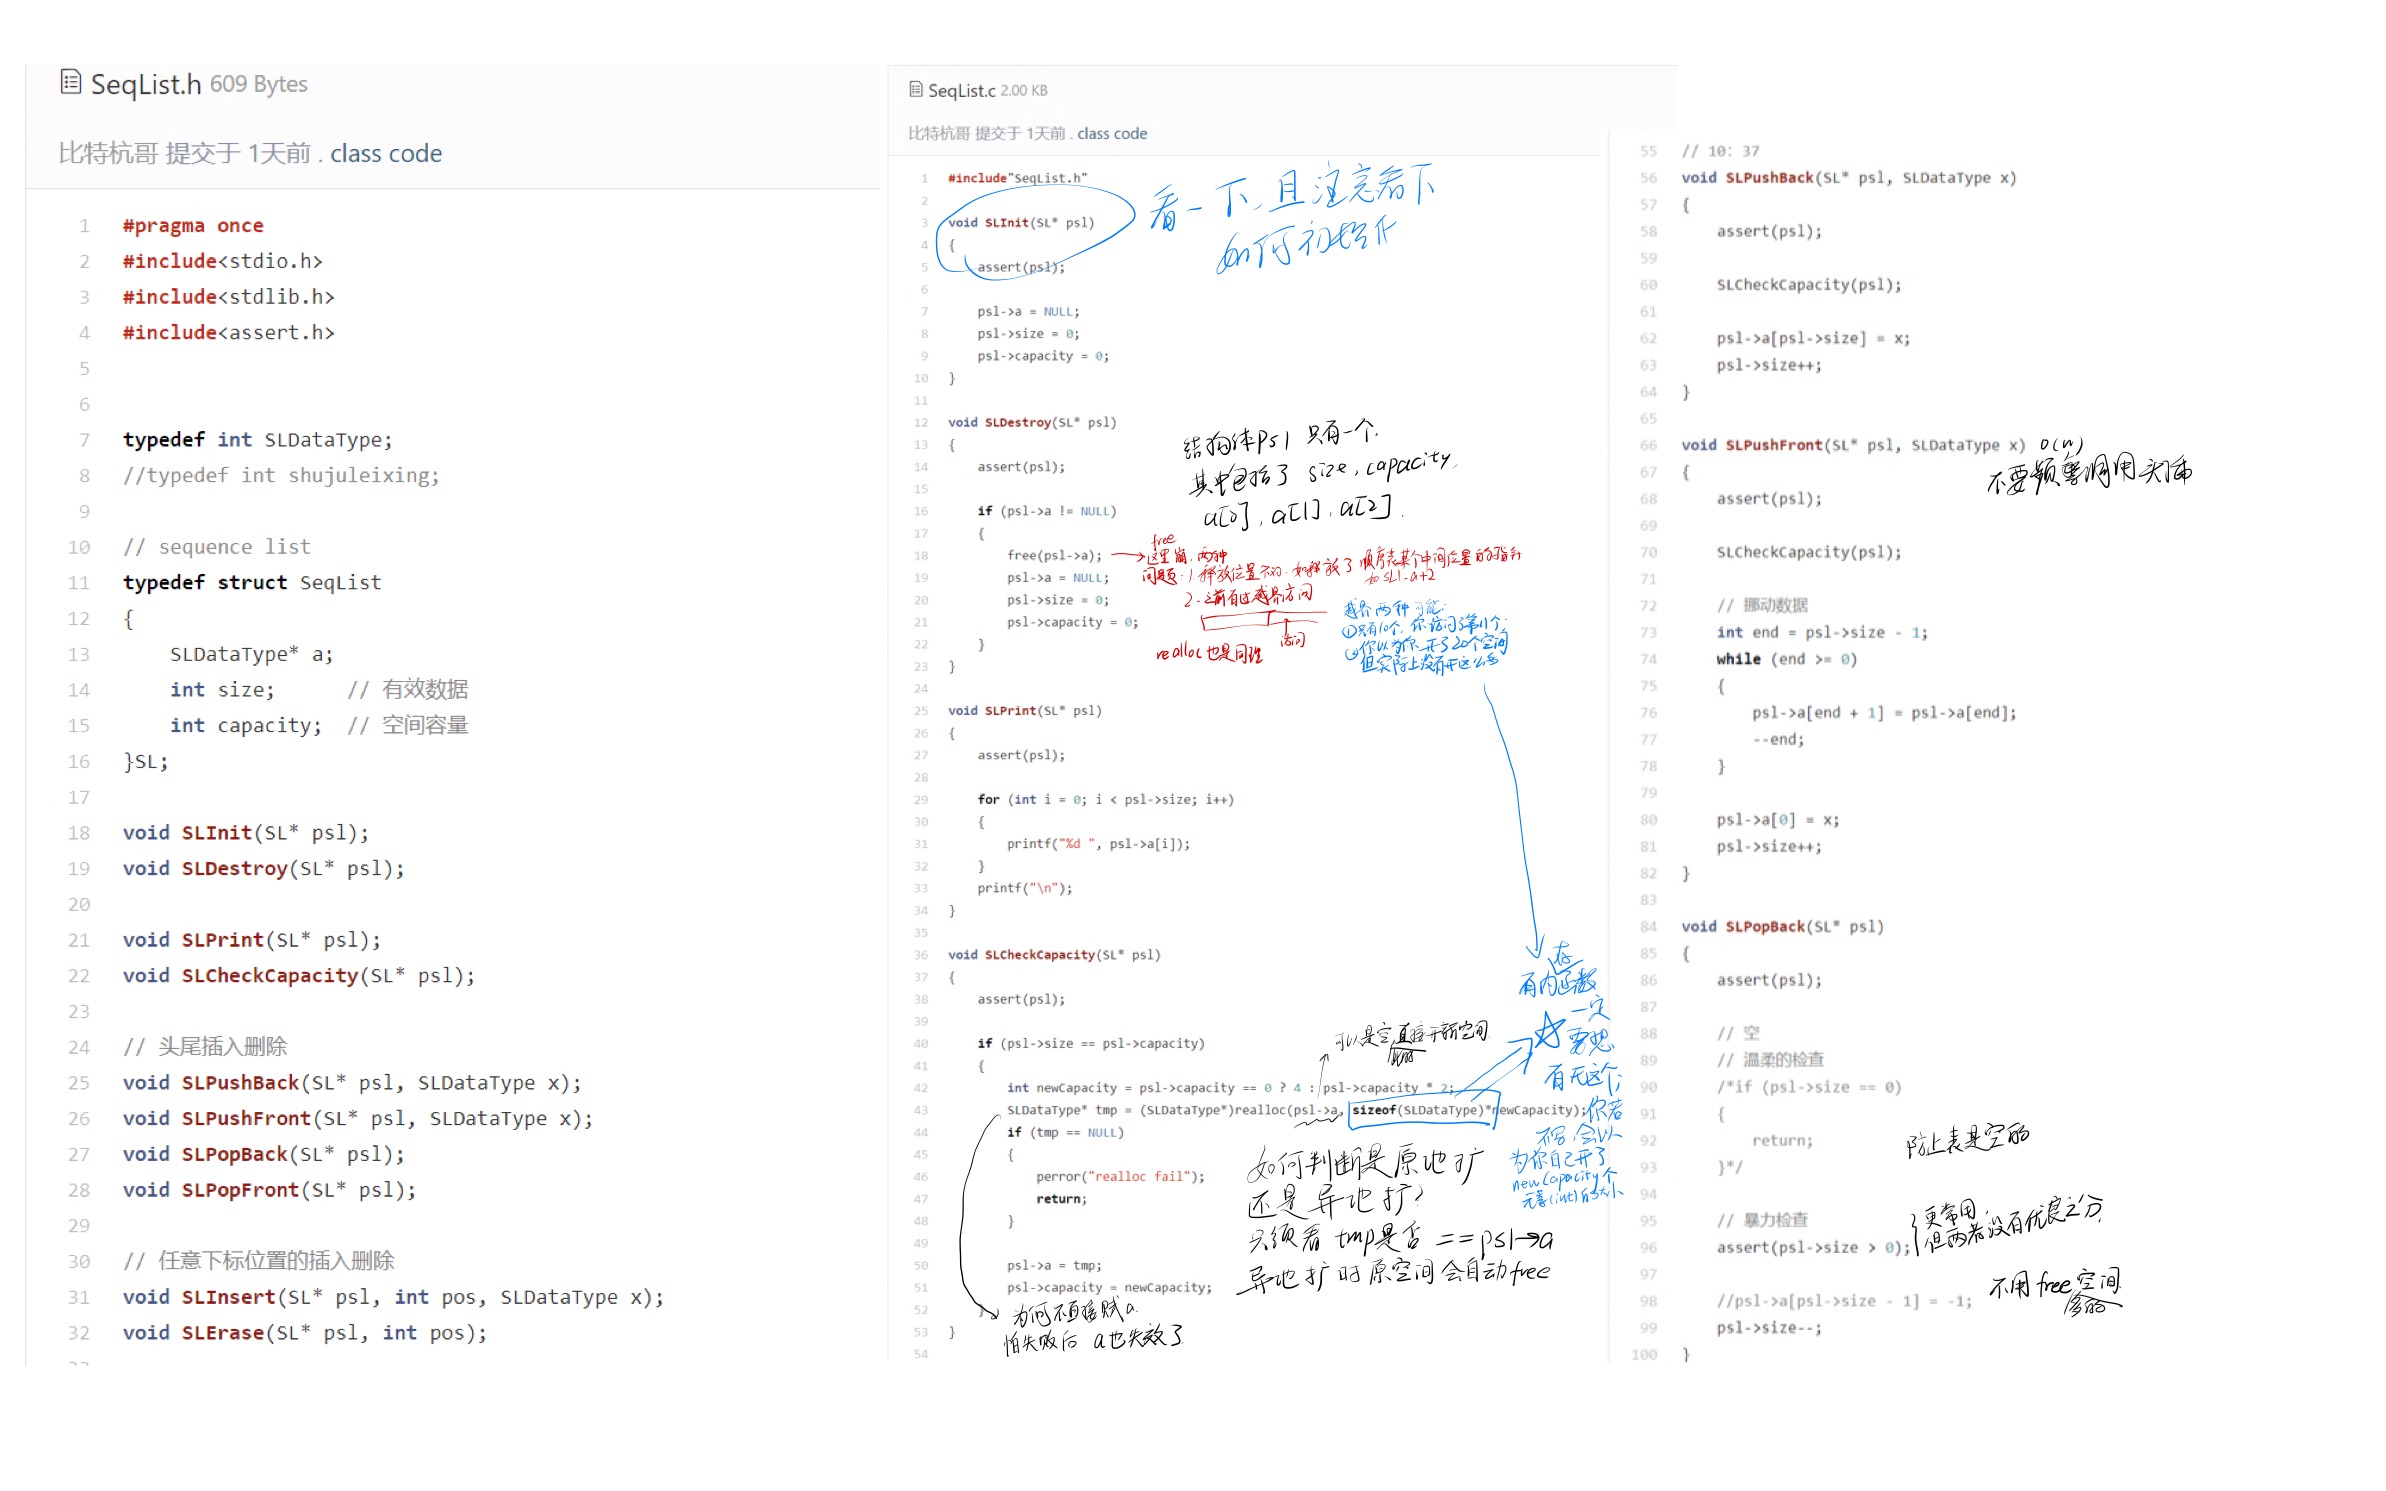 SeqList.h 609 Bytes
比特杭哥 提交于 1天前 . class code
1 #pragma once
2 #include<stdio.h>
3 #include<stdlib.h>
4 #include<assert.h>
5
6
7 typedef int SLDataType;
8 //typedef int shujuleixing;
9
10 // sequence list
11 typedef struct SeqList
12 {
13 SLDataType* a;
14 int size; // 有效数据
15 int capacity; // 空间容量
16 }SL;
17
18 void SLInit(SL* psl);
19 void SLDestroy(SL* psl);
20
21 void SLPrint(SL* psl);
22 void SLCheckCapacity(SL* psl);
23
24 // 头尾插入删除
25 void SLPushBack(SL* psl, SLDataType x);
26 void SLPushFront(SL* psl, SLDataType x);
27 void SLPopBack(SL* psl);
28 void SLPopFront(SL* psl);
29
30 // 任意下标位置的插入删除
31 void SLInsert(SL* psl, int pos, SLDataType x);
32 void SLErase(SL* psl, int pos);
SeqList.c 2.00 KB
比特杭哥 提交于 1天前 . class code
1 #include"SeqList.h"
2
3 void SLInit(SL* psl)
4 {
5 assert(psl);
6
7 psl->a = NULL;
8 psl->size = 0;
9 psl->capacity = 0;
10 }
11
看一下,且注意看下
如何初始化
12 void SLDestroy(SL* psl)
13 {
14 assert(psl);
15
16 if (psl->a != NULL)
17 {
18 free(psl->a);
19 psl->a = NULL;
20 psl->size = 0;
21 psl->capacity = 0;
22 }
23 }
24
结构体psl 只有一个.
其中包括了 size, capacity,
a[0], a[1], a[2].
free
这里崩,两种
问题:1 释放位置不对.如释放了 顺序表某个中间位置的指针
如SL1.a+2
2.之前有过越界访问
访问
realloc也是同理
越界两种可能:
①只有10个,你访问了第11个.
②你以为你开了20个空间
但实际上没有开这么多
25 void SLPrint(SL* psl)
26 {
27 assert(psl);
28
29 for (int i = 0; i < psl->size; i++)
30 {
31 printf("%d ", psl->a[i]);
32 }
33 printf("\n");
34 }
35
36 void SLCheckCapacity(SL* psl)
37 {
38 assert(psl);
39
40 if (psl->size == psl->capacity)
41 {
42 int newCapacity = psl->capacity == 0 ? 4 : psl->capacity * 2;
43 SLDataType* tmp = (SLDataType*)realloc(psl->a, sizeof(SLDataType)*newCapacity);
44 if (tmp == NULL)
45 {
46 perror("realloc fail");
47 return;
48 }
49
50 psl->a = tmp;
51 psl->capacity = newCapacity;
52
53 }
54
可以是空,直接开新空间
有内存函数
一定
要想
有无这个,
你若
不写,会以
为你自己开了
newCapacity个
元素(int)的大小
如何判断是原地扩
还是异地扩?
只须看 tmp是否 ==psl->a
异地扩时原空间会自动free
为何不直接赋a.
怕失败后 a也失效了
55 // 10: 37
56 void SLPushBack(SL* psl, SLDataType x)
57 {
58 assert(psl);
59
60 SLCheckCapacity(psl);
61
62 psl->a[psl->size] = x;
63 psl->size++;
64 }
65
66 void SLPushFront(SL* psl, SLDataType x) O(N)
不要频繁调用头插
67 {
68 assert(psl);
69
70 SLCheckCapacity(psl);
71
72 // 挪动数据
73 int end = psl->size - 1;
74 while (end >= 0)
75 {
76 psl->a[end + 1] = psl->a[end];
77 --end;
78 }
79
80 psl->a[0] = x;
81 psl->size++;
82 }
83
84 void SLPopBack(SL* psl)
85 {
86 assert(psl);
87
88 // 空
89 // 温柔的检查
90 /*if (psl->size == 0)
91 {
92 return;
93 }*/
94
防止表是空的
95 // 暴力检查
96 assert(psl->size > 0);
更常用,
但两者没有优良之分
97
98 //psl->a[psl->size - 1] = -1;
99 psl->size--;
100 }
不用free空间
多的